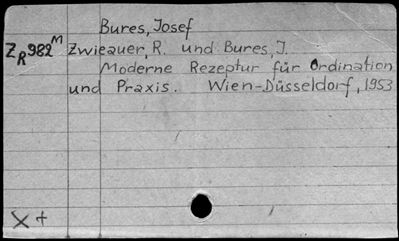 Bures, Josef
ZR982M Zwieauer, R. und Bures, J.
Moderne Rezeptur für Ordination
und Praxis. Wien-Düsseldorf, 1953
X +